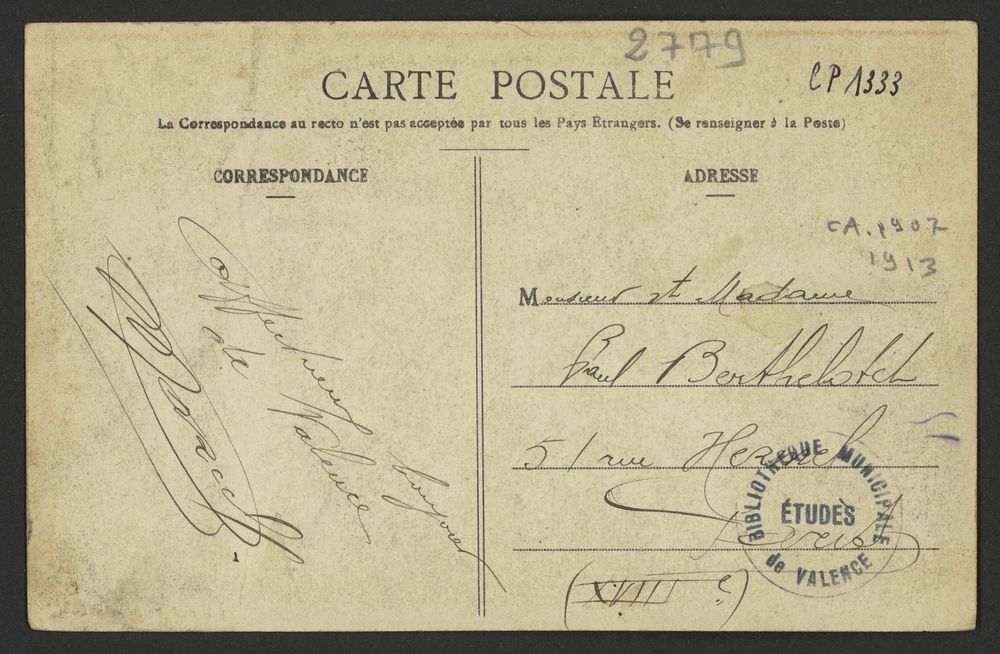 2779
CP 1333
CARTE POSTALE
La Correspondance au recto n'est pas acceptée par tous les Pays Etrangers. (Se renseigner à la Poste)
CORRESPONDANCE
Affectueux
de Valence
ADRESSE
CA. 1907
1913
Monsieur et Madame
Paul Berthelotch
51 rue
Paris
(XVIII e)
BIBLIOTHEQUE MUNICIPALE
ÉTUDES
de VALENCE